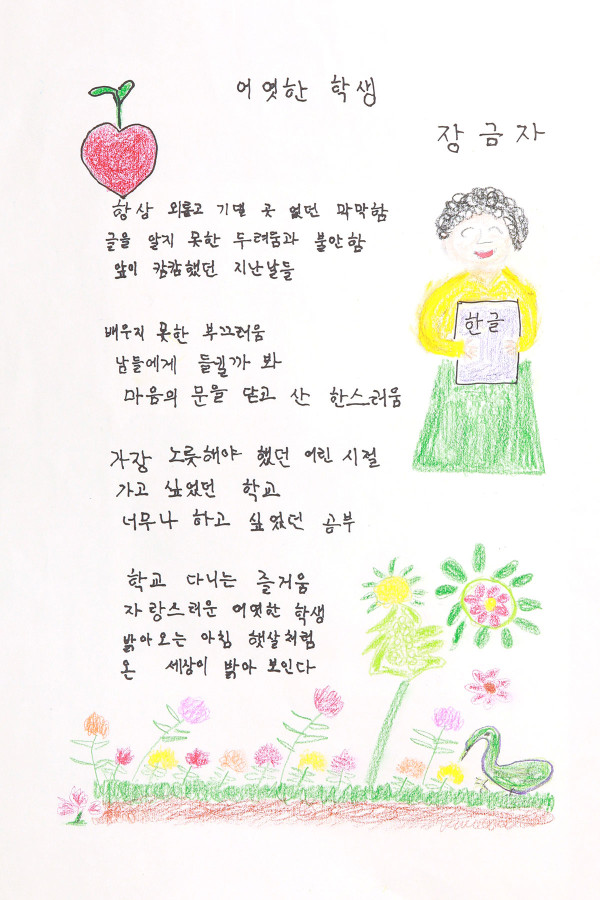 어엿한 학생
장금자
항상 외롭고 기댈 곳 없던 막막함
글을 알지 못한 두려움과 불안함
앞이 캄캄했던 지난날들
배우지 못한 부끄러움
남들에게 들킬까 봐
마음의 문을 닫고 산 한스러움
한글
가장 노릇해야 했던 어린 시절
가고 싶었던 학교
너무나 하고 싶었던 공부
학교 다니는 즐거움
자랑스러운 어엿한 학생
밝아오는 아침 햇살처럼
온 세상이 밝아 보인다